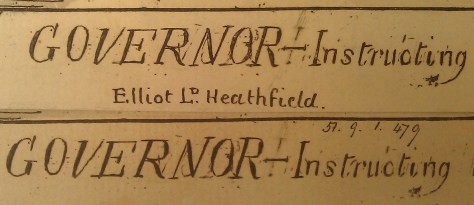 GOVERNOR–Instructing
Elliot Lᴰ. Heathfield.
51. 9. 1. 479
GOVERNOR–Instructing